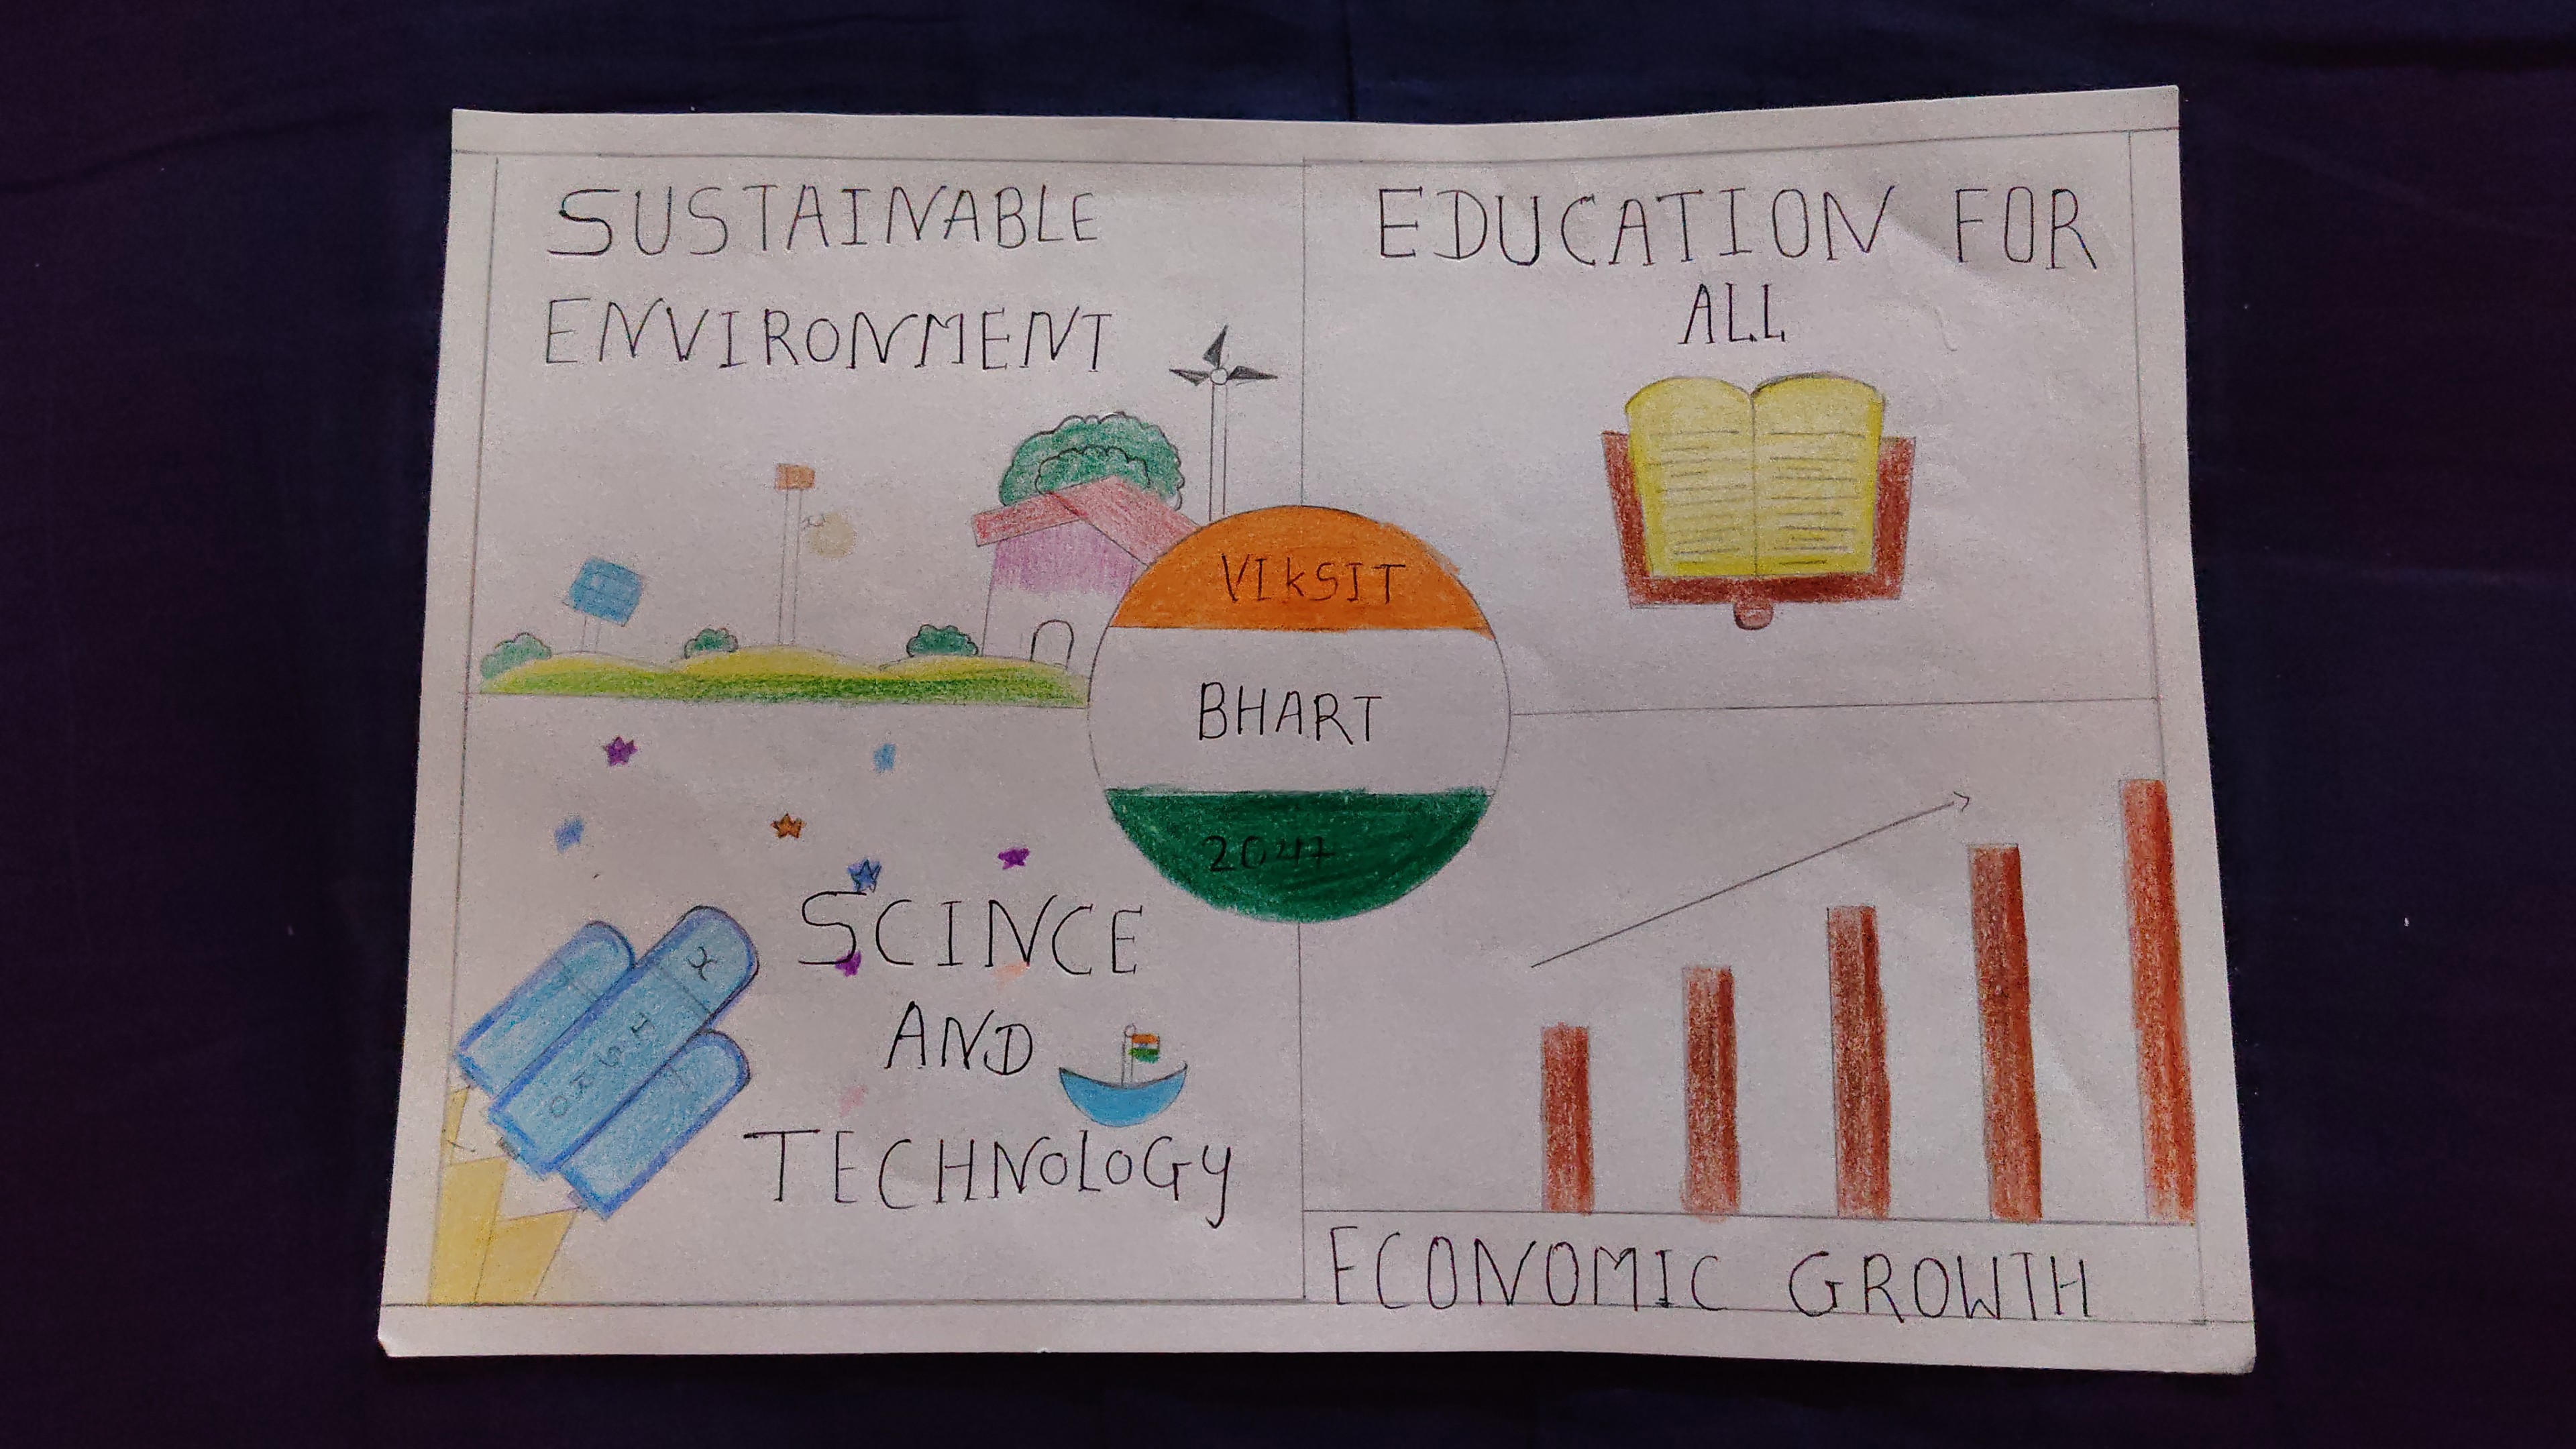 SUSTAINABLE
ENVIRONMENT
EDUCATION FOR
ALL
VIkSIT
BHART
2047
SCINCE
AND
TECHNOLOGY
ECONOMIC GROWTH